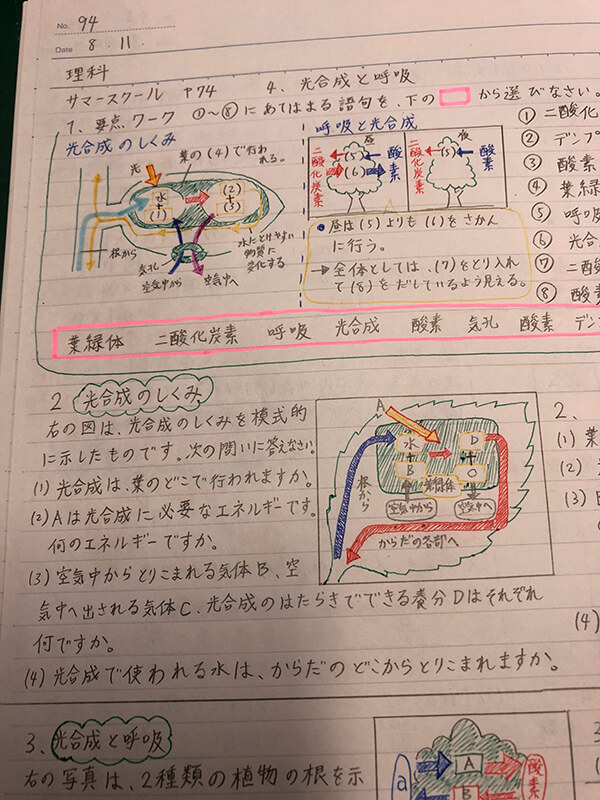 No. 94
Date 8 . 11 .
理科
サマースクール P74 4、光合成と呼吸
1、要点ワーク ①~⑧にあてはまる語句を、下の から選びなさい。
光合成のしくみ
葉の(4)で行われる。
光
水
+
(1)
(2)
+
(3)
根から
気孔
空気中から
空気中へ
水にとけやすい物質に変化する
呼吸と光合成
昼
夜
二酸化炭素
(5)
(6)
酸素
二酸化炭素
(5)
酸素
●昼は(5)よりも(6)をさかんに行う。
→全体としては、(7)をとり入れて(8)をだしているよう見える。
① 二酸化
② デンプ
③ 酸素
④ 葉緑
⑤ 呼吸
⑥ 光合
⑦ 二酸
⑧ 酸素
葉緑体 二酸化炭素 呼吸 光合成 酸素 気孔 酸素 デン
2 光合成のしくみ
右の図は、光合成のしくみを模式的
に示したものです。次の問いに答えなさい。
(1) 光合成は、葉のどこで行われますか。
(2) Aは光合成に必要なエネルギーです。
何のエネルギーですか。
(3) 空気中からとりこまれる気体B、空
気中へ出される気体C、光合成のはたらきでできる養分Dはそれぞれ
何ですか。
(4) 光合成で使われる水は、からだのどこからとりこまれますか。
A
水
+
B
D
+
葉緑体
根から
空気中から
空気中へ
からだの各部へ
2、
(1) 葉
(2)
(3)
(4)
3、光合成と呼吸
右の写真は、2種類の植物の根を示
a
A
B
酸素